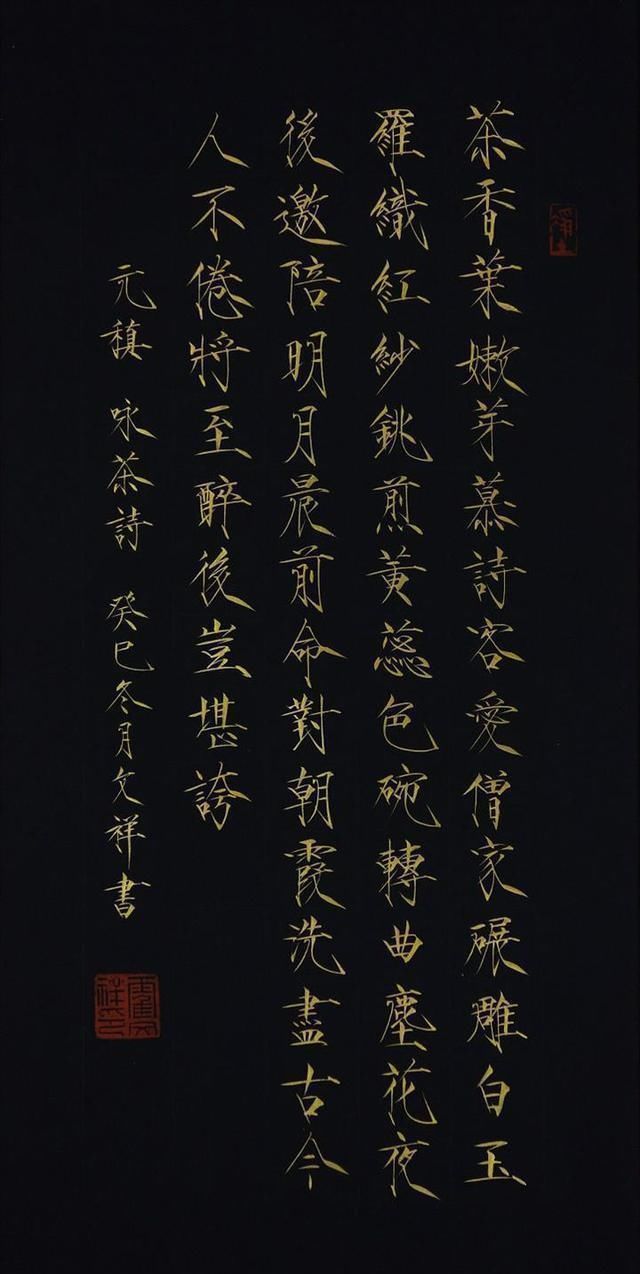 茶香葉嫩芽慕詩客愛僧家碾雕白玉
羅織紅紗銚煎黃蕊色碗轉曲塵花夜
後邀陪明月晨前命對朝霞洗盡古今
人不倦將至醉後豈堪誇
元稹 咏茶詩 癸巳冬月文祥書